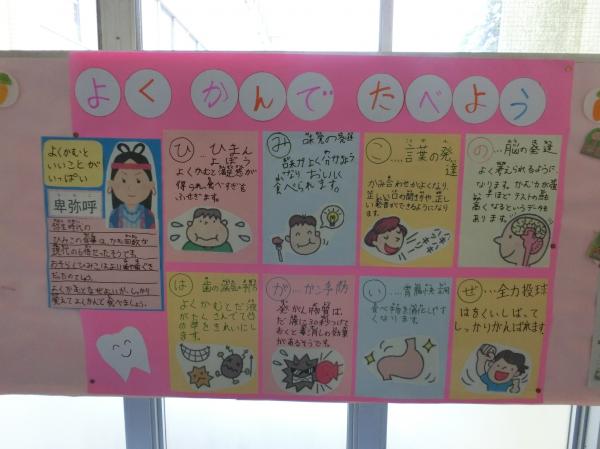 よくかんでたべよう
よくかむと
いいことが
いっぱい
ひみこ
卑弥呼
弥生時代の
ひみこの食事は、かむ回数が
現代の6倍だったそうです。
よくかむとなぜよいか、しっかり
覚えてよくかんで食べましょう。
ひ…ひまん
よぼう
よくかむと満腹感が
得られ、食べすぎを
ふせぎます。
み…味覚の発達
味がよく分かるよう
になり、おいしく
食べられます。
こ…言葉の発
達
かみ合わせがよくなり、
正しい口の開き方や、正し
い発音ができるようになり
ます。
ハキハキ
の…脳の発達
よく考えられるように
なります。かんだ方が
テストの点
高くなるというデータも
あります。
は…歯の病気予防
よくかむとだ液
がたくさんでて口
の中をきれいにし
ます。
が…がん予防
発がん物質は、
だ液に30秒つけて
おくと毒消しの効果
があるそうです。
い…胃腸快調
食べ物を消化しやす
くなります。
ぜ…全力投球
はをくいしばって
しっかりがんばれます。